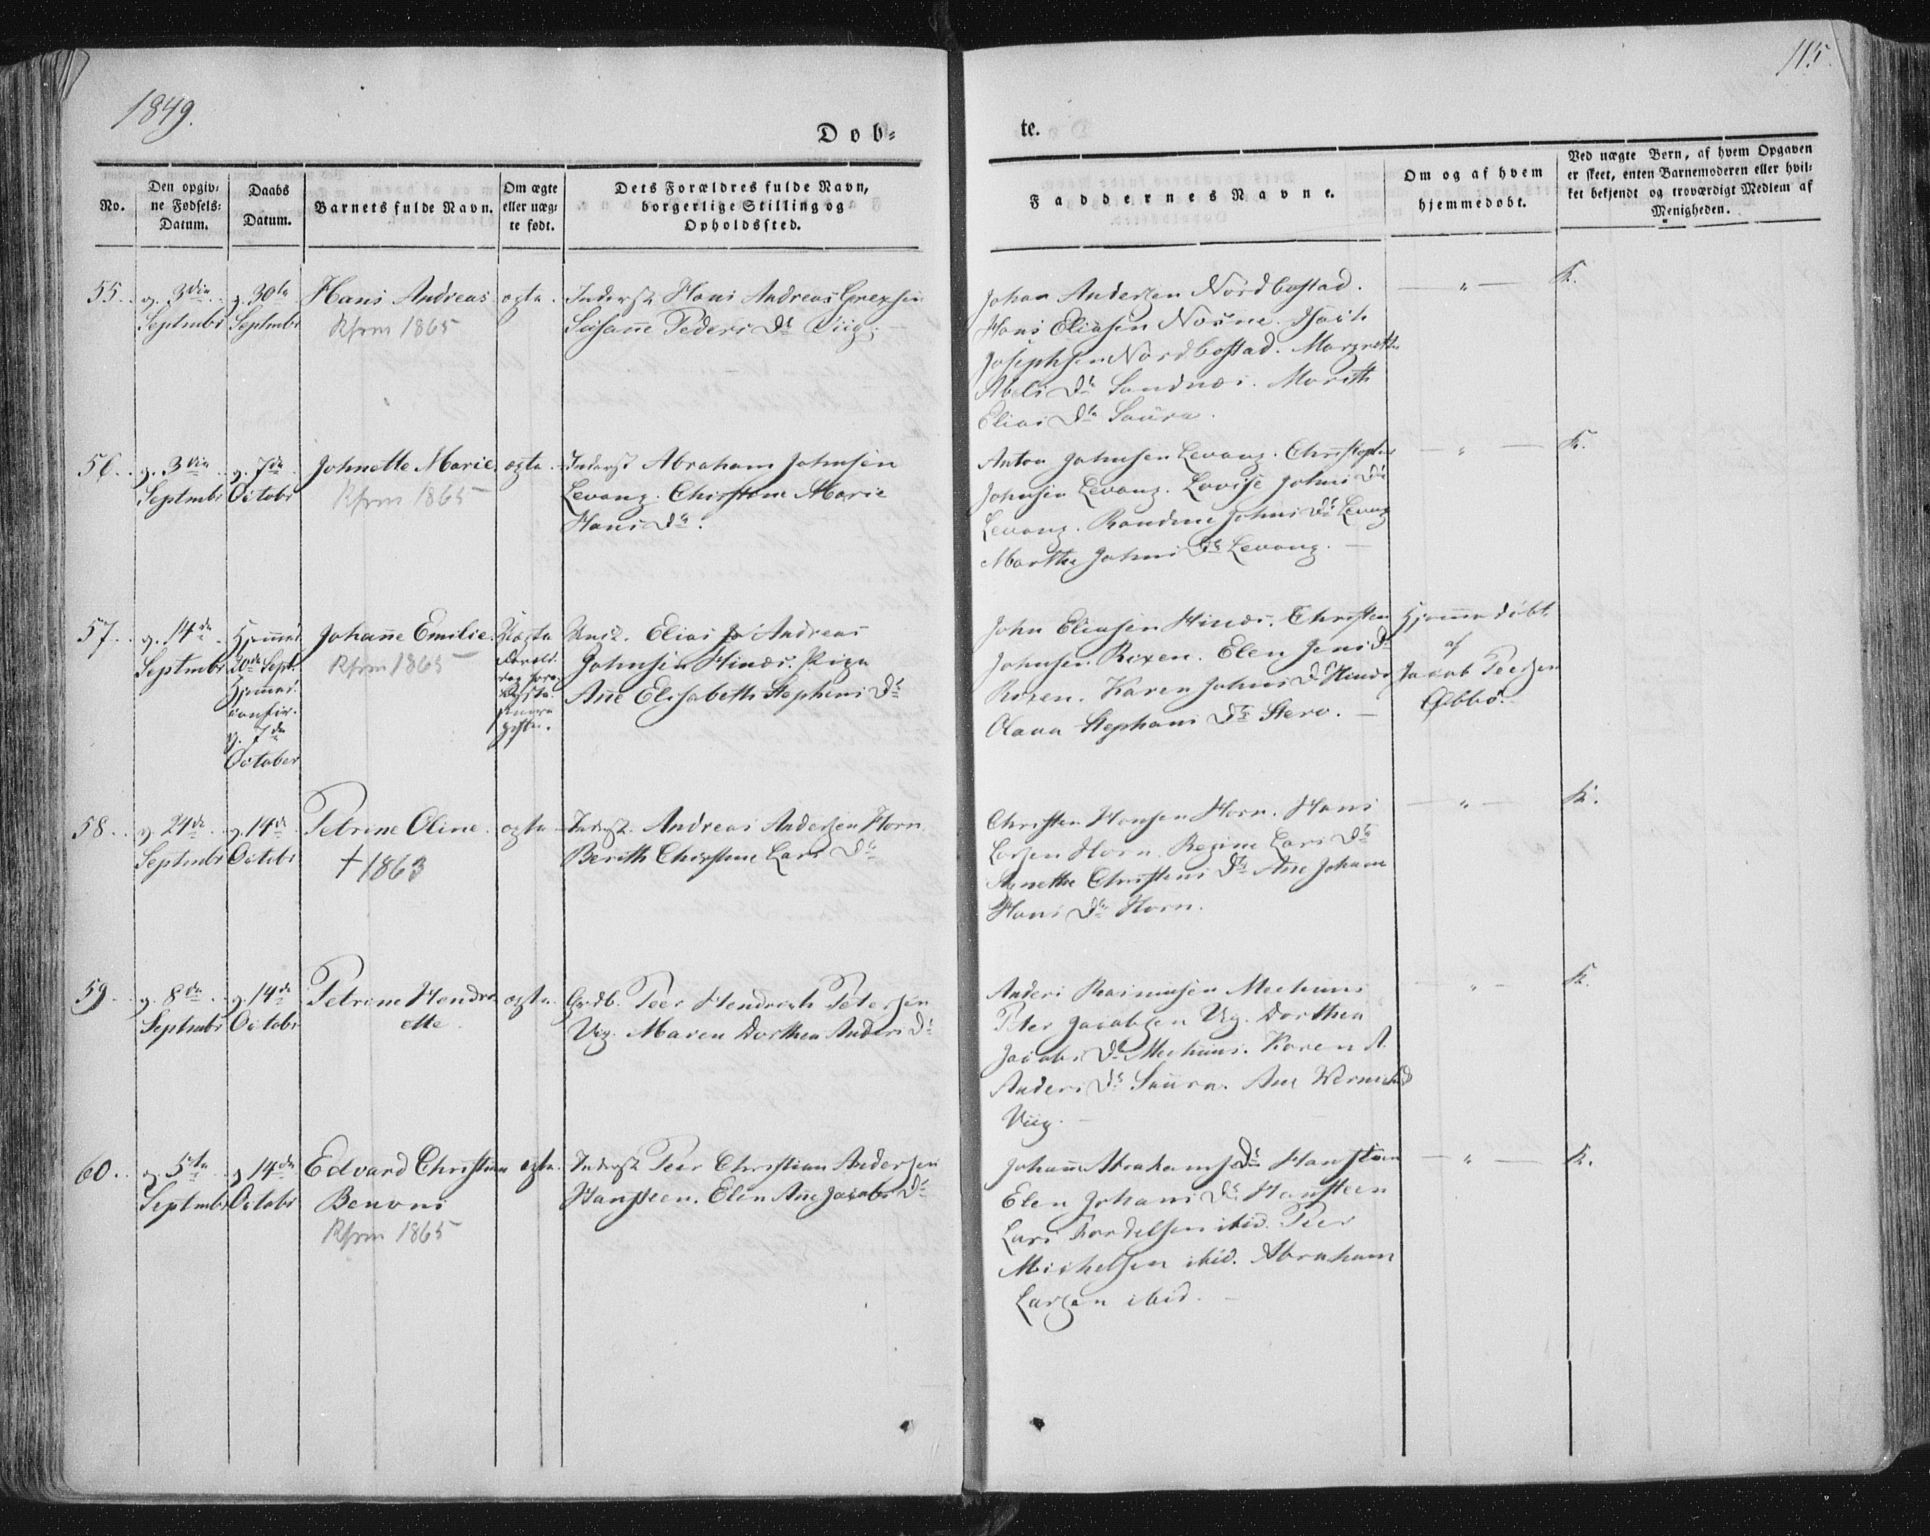 1849.
115.
Dob-
te.
No.
Den opgiv-
ne Fødsels-
Datum.
Daabs
Datum.
Barnets fulde Navn.
Om ægte
eller uæg-
te født.
Dets Forældres fulde Navn,
borgerlige Stilling og
Opholdssted.
Faddernes Navne.
Om og af hvem
hjemmedøbt.
Ved uægte Børn, af hvem Opgaven
er skeet, enten Barnemoderen eller hvil-
ket bekjendt og troværdigt Medlem af
Menigheden.
55. d. 3die Septmbr
d. 30te Septmbr
Hans Andreas
Kfrm 1865
ægte.
Inderst Hans Andreas
Susanne Peders Dr Viig.
Johan Andersen Nordbostad.
Hans Eliasen Isach
Josephsen Nordbostad. Margrethe
Abels Dr Sandnæs. Marith
Elias Dr Saura.
K.
56. d. 3die Septmbr
d. 7de Octobr
Johnette Marie.
Kfrm 1865
ægte.
Inderst Abraham Johnsen
Levang. Christine Marie
Hans Dr.
Anton Johnsen Levang. Christopher
Johnsen Levang. Lovise Johns Dr
Levang. Randine Johns Dr Levang
Marthe Johns Dr Levang.
K.
57. d. 14de Septmbr
20de Septr.
d. 7de
October
Johanne Emilie.
Kfrm 1865
Uægte
Elias Andreas
Johnsen Hinæs. Pige
Ane Elisabeth Stephens Dr
John Eliasen Hinæs. Christen
Johnsen Elen Jens Dr
Karen Johns Dr Hinæs
Olava Stephans Dr
Hjemmedøbt
af
Jacob Peersen
58. d. 24de Septmbr
d. 14de Octobr
Petrine Oline.
† 1863
ægte
Inderst. Andreas Andersen Horn.
Berith Christine Lars Dr
Christen Hansen Horn. Hans
Larsen Horn. Regine Lars Dr
Agnethe Christens Dr Ane Johana
Hans Dr Horn.
K.
59. d. 8de Septmbr
d. 14de Octobr
Petrine Hendri-
ette
ægte.
Grdb. Peer Hendrich Petersen
Viig. Maren Dorthea Anders Dr
Anders Rasmusen
Peter Jacobsen Viig. Dorthea
Jacobs Dr Karen A.
Anders Dr Saura. Ane
Viig.
K.
60. d. 5te Septmbr
d. 14de Octobr
Edvard Christian
Benoni
Kfrm 1865
ægte.
Inderst Peer Christian Andersen
Hansteen. Elen Ane Jacobs Dr
Johanne Abrahams Dr Hansteen
Elen Johans Dr Hansteen
Lars ibid. Peer
Michelsen ibid. Abraham
Larsen ibid.
K.